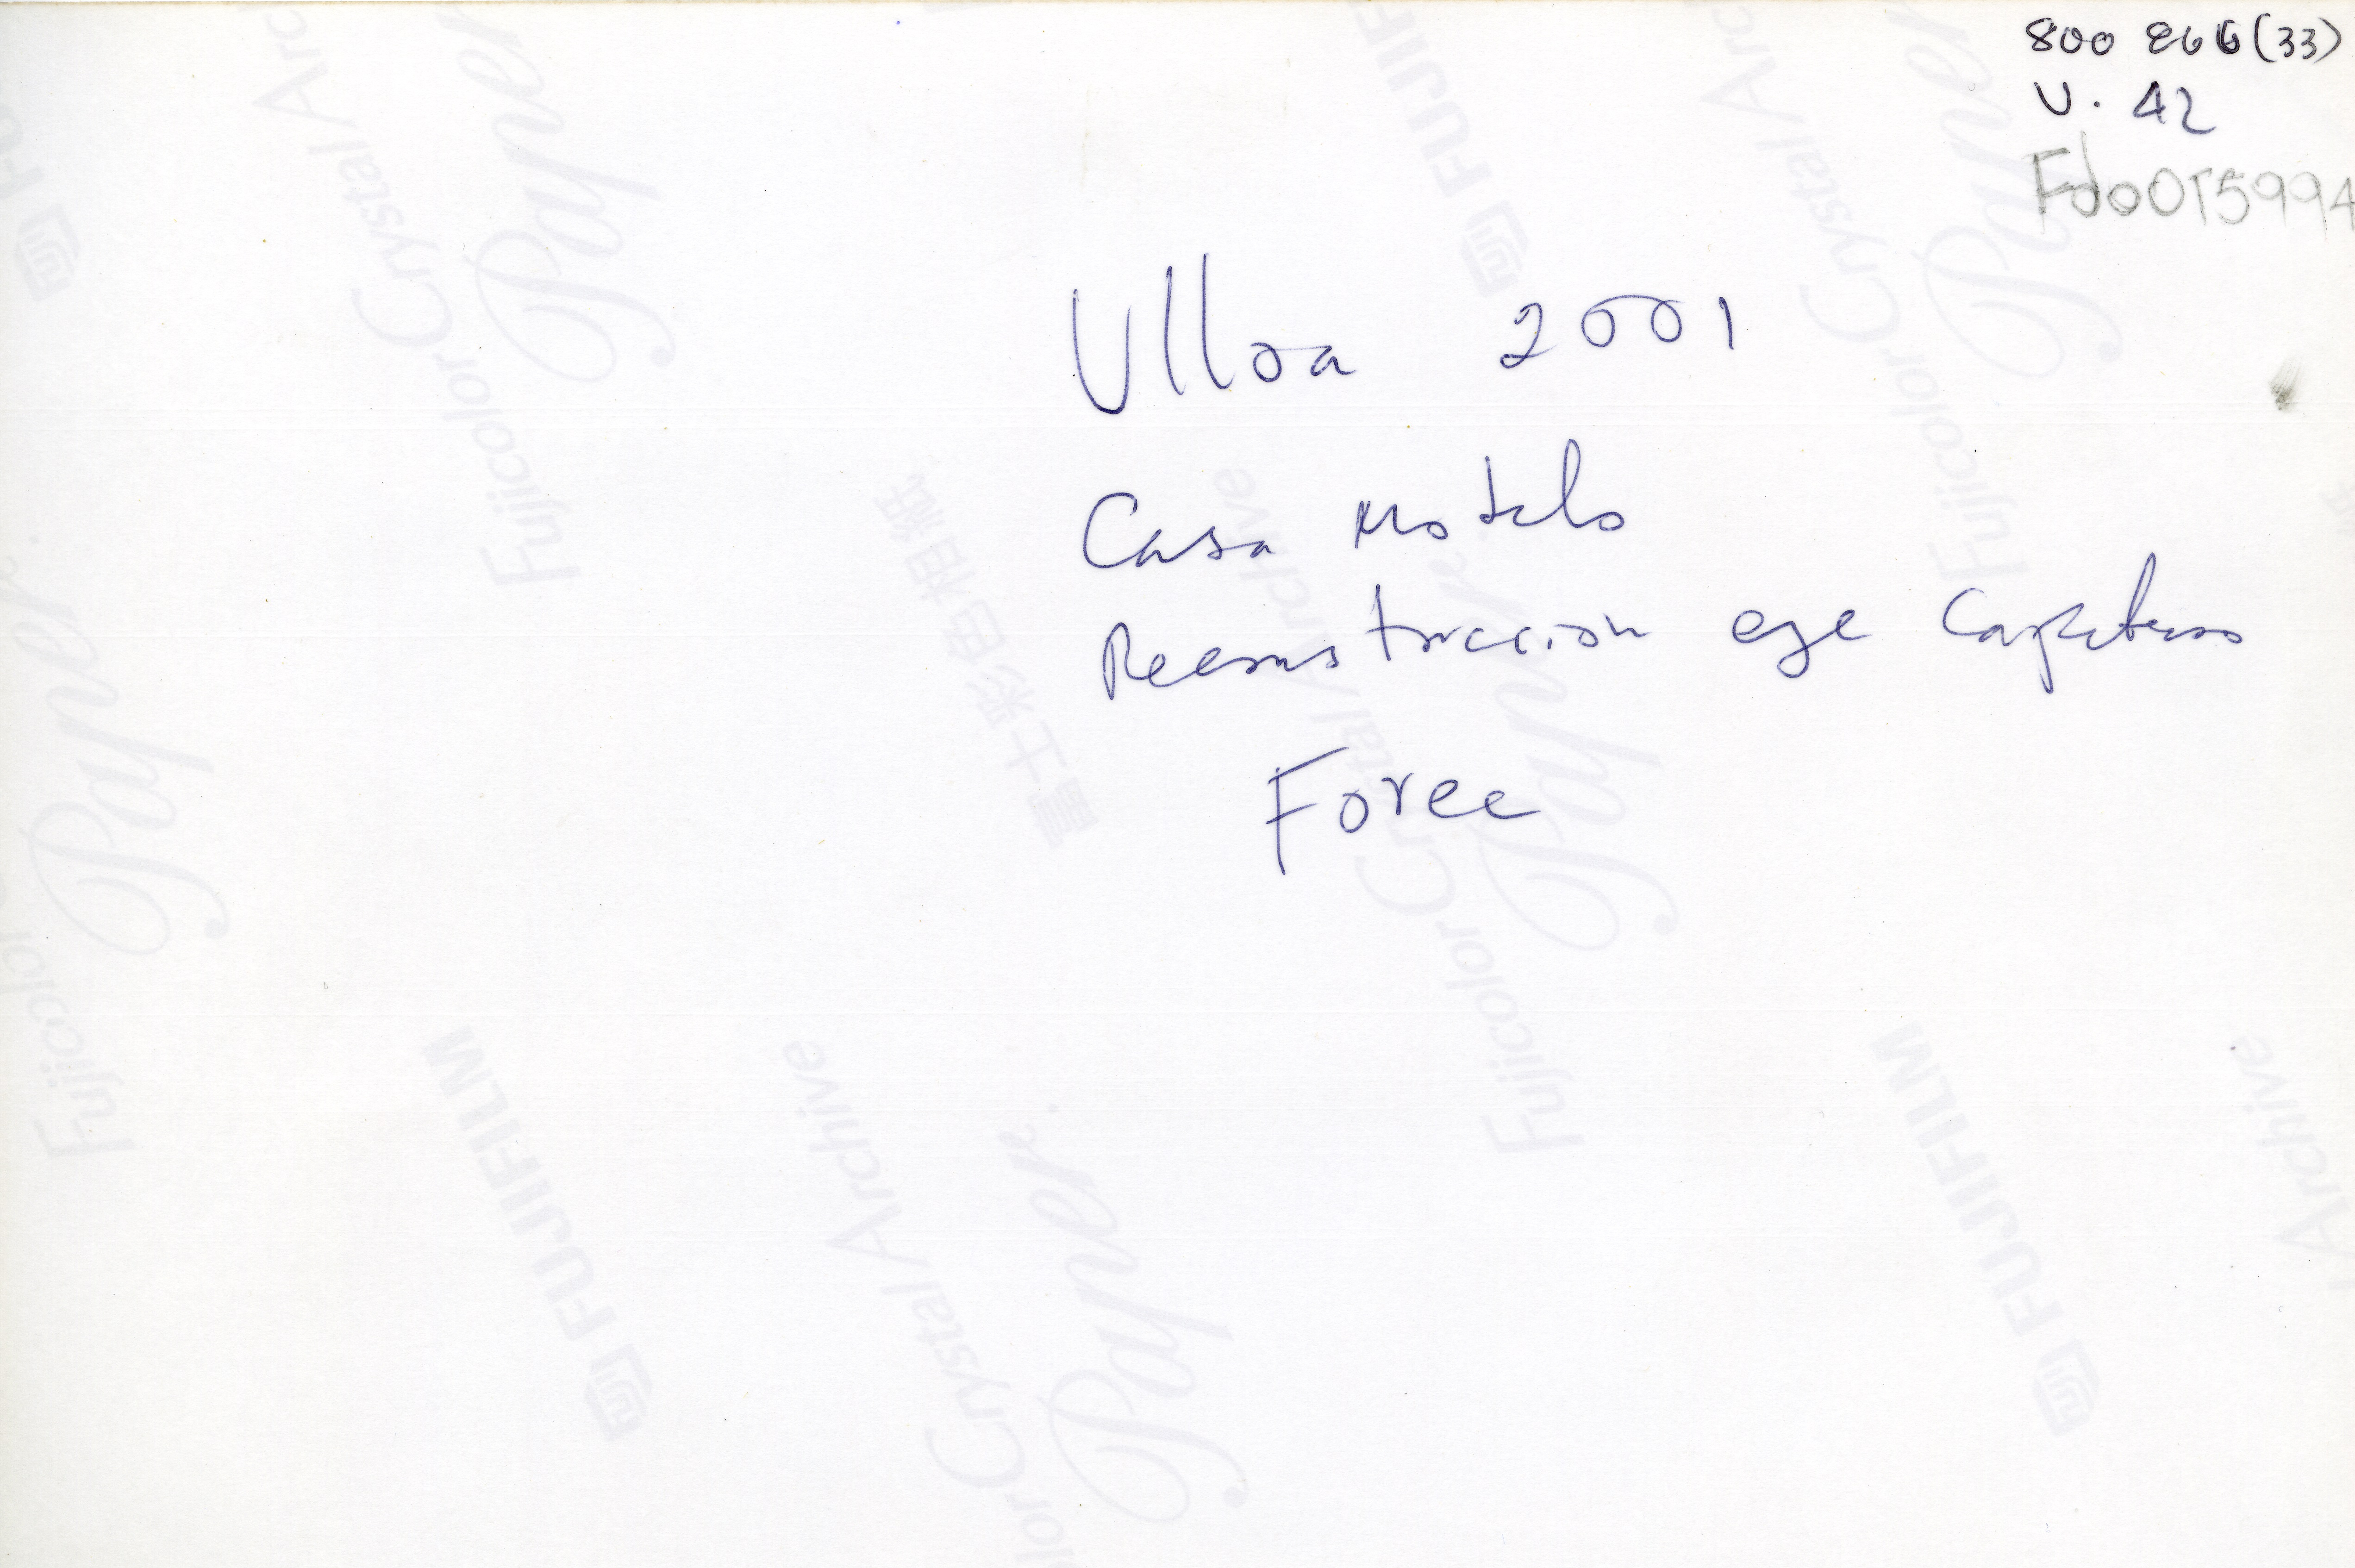 800 866(33)
V. 42
Fdo015994
Ulloa 2001
Casa Modelo
Reconstruccion eje Cafetero
Forec
Fujicolor Crystal Archive
Paper.
FUJIFILM
富士彩色相紙